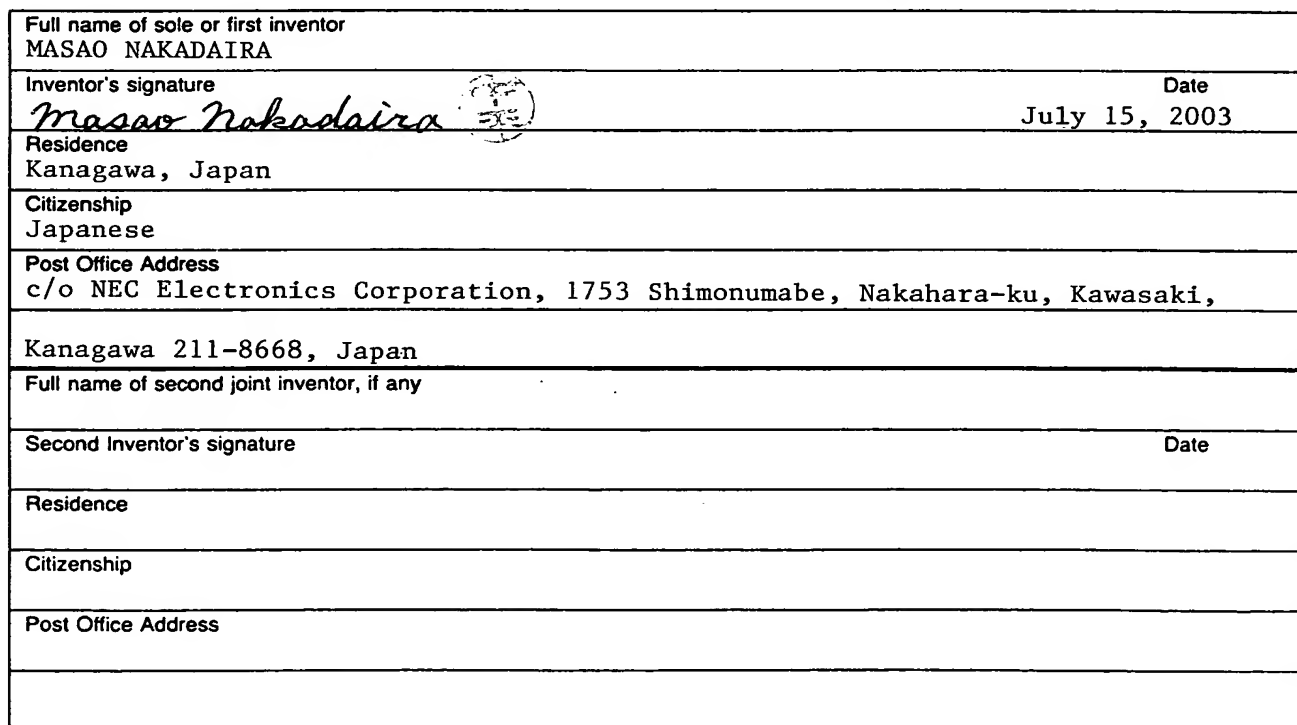 Full name of sole or first inventor
MASAO NAKADAIRA
Inventor's signature Date
Masao Nakadaira July 15, 2003
Residence
Kanagawa, Japan
Citizenship
Japanese
Post Office Address
c/o NEC Electronics Corporation, 1753 Shimonumabe, Nakahara-ku, Kawasaki,
Kanagawa 211-8668, Japan
Full name of second joint inventor, if any
Second Inventor's signature Date
Residence
Citizenship
Post Office Address